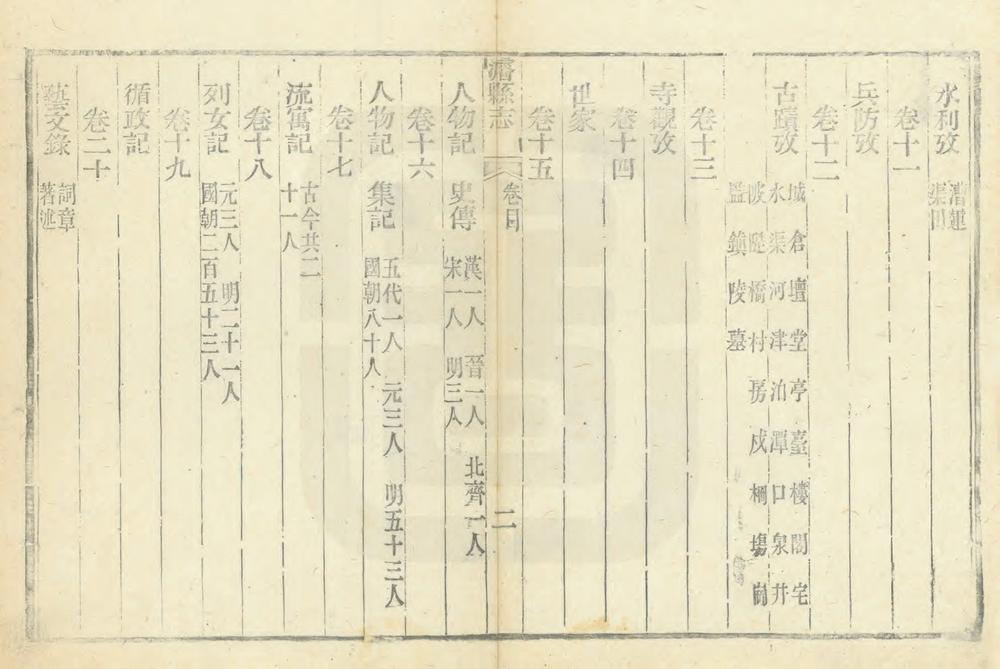 水利攷 漕運
渠田
卷十一
兵防攷
卷十二
古蹟攷 城倉壇堂亭臺樓閣宅
水渠河津泊潭口泉井
陂隄橋村房戍柵場
監鎮陵墓
卷十三
寺觀攷
卷十四
世家
卷十五
濬縣志 卷目 二
人物記 史傳 漢一人 晉一人 北齊一人
宋一人 明三人
卷十六
人物記 集記 五代一人 元三人 明五十三人
國朝八十人
卷十七
流寓記 古今共二
十一人
卷十八
列女記 元三人 明二十一人
國朝二百五十三人
卷十九
循政記
卷二十
藝文錄 詞章
著述